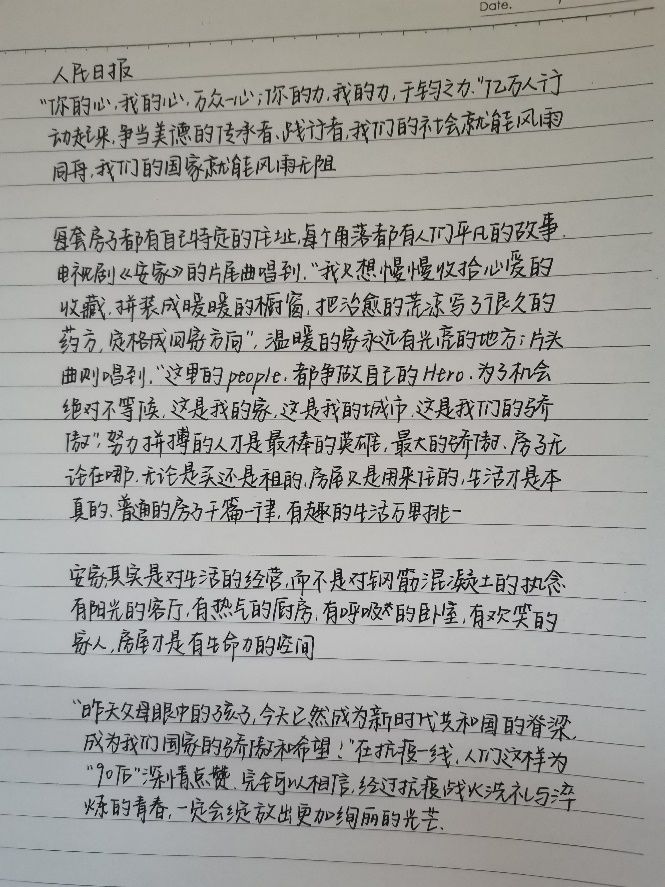 Date.
人民日报
"你的心,我的心,万众一心;你的力,我的力,千钧之力."亿万人行
动起来,争当美德的传承者、践行者,我们的社会就能风雨
同舟,我们的国家就能风雨无阻
每套房子都有自己特定的住址,每个角落都有人们平凡的故事.
电视剧《安家》的片尾曲唱到,"我只想慢慢收拾心爱的
收藏,拼装成暖暖的橱窗,把治愈的荒凉写了很久的
药方,定格成回家方向",温暖的家永远有光亮的地方;片头
曲则唱到,"这里的people,都争做自己的Hero,为了机会
绝对不等候,这是我的家,这是我的城市,这是我们的骄
傲",努力拼搏的人才是最棒的英雄,最大的骄傲.房子无
论在哪,无论是买还是租的,房屋只是用来住的,生活才是本
真的、普通的房子千篇一律,有趣的生活万里挑一
安家其实是对生活的经营,而不是对钢筋混凝土的执念
有阳光的客厅,有热气的厨房,有呼吸的卧室,有欢笑的
家人,房屋才是有生命力的空间
"昨天父母眼中的孩子,今天已然成为新时代共和国的脊梁,
成为我们国家的骄傲和希望!"在抗疫一线,人们这样为
"90后"深情点赞.完全可以相信,经过抗疫战火洗礼与淬
炼的青春,一定会绽放出更加绚丽的光芒.